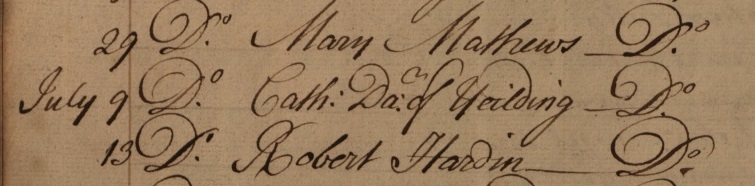 29 Do. Mary Mathews — Do.
July 9 Do. Cath: Da: of Yeilding — Do.
13 Do. Robert Hardin — Do.